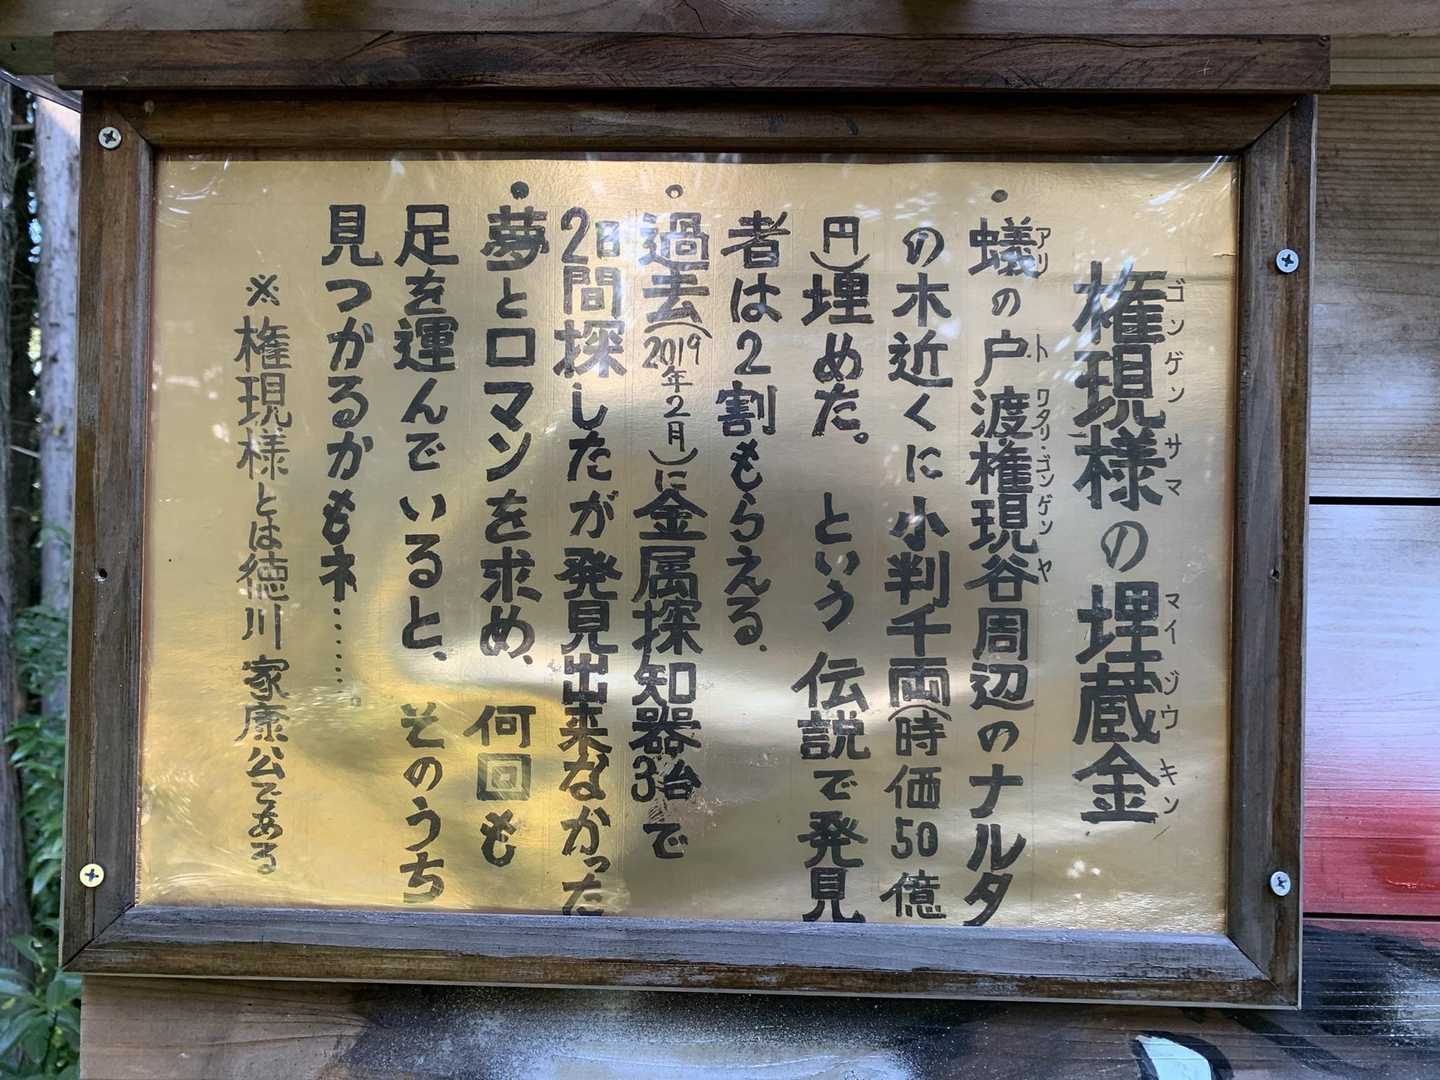 権現様の埋蔵金
ゴンゲンサママイゾウキン
・蟻の戸渡権現谷周辺のナルタ
アリトワタリ・ゴンゲンヤ
の木近くに小判千両(時価50億
円)埋めた。という伝説で発見
者は2割もらえる.
・過去(2019年2月)に金属探知器3台で
2日間探したが発見出来なかった
・夢とロマンを求め、何回も
足を運んでいると、そのうち
見つかるかもネ……。
※権現様とは徳川家康公である